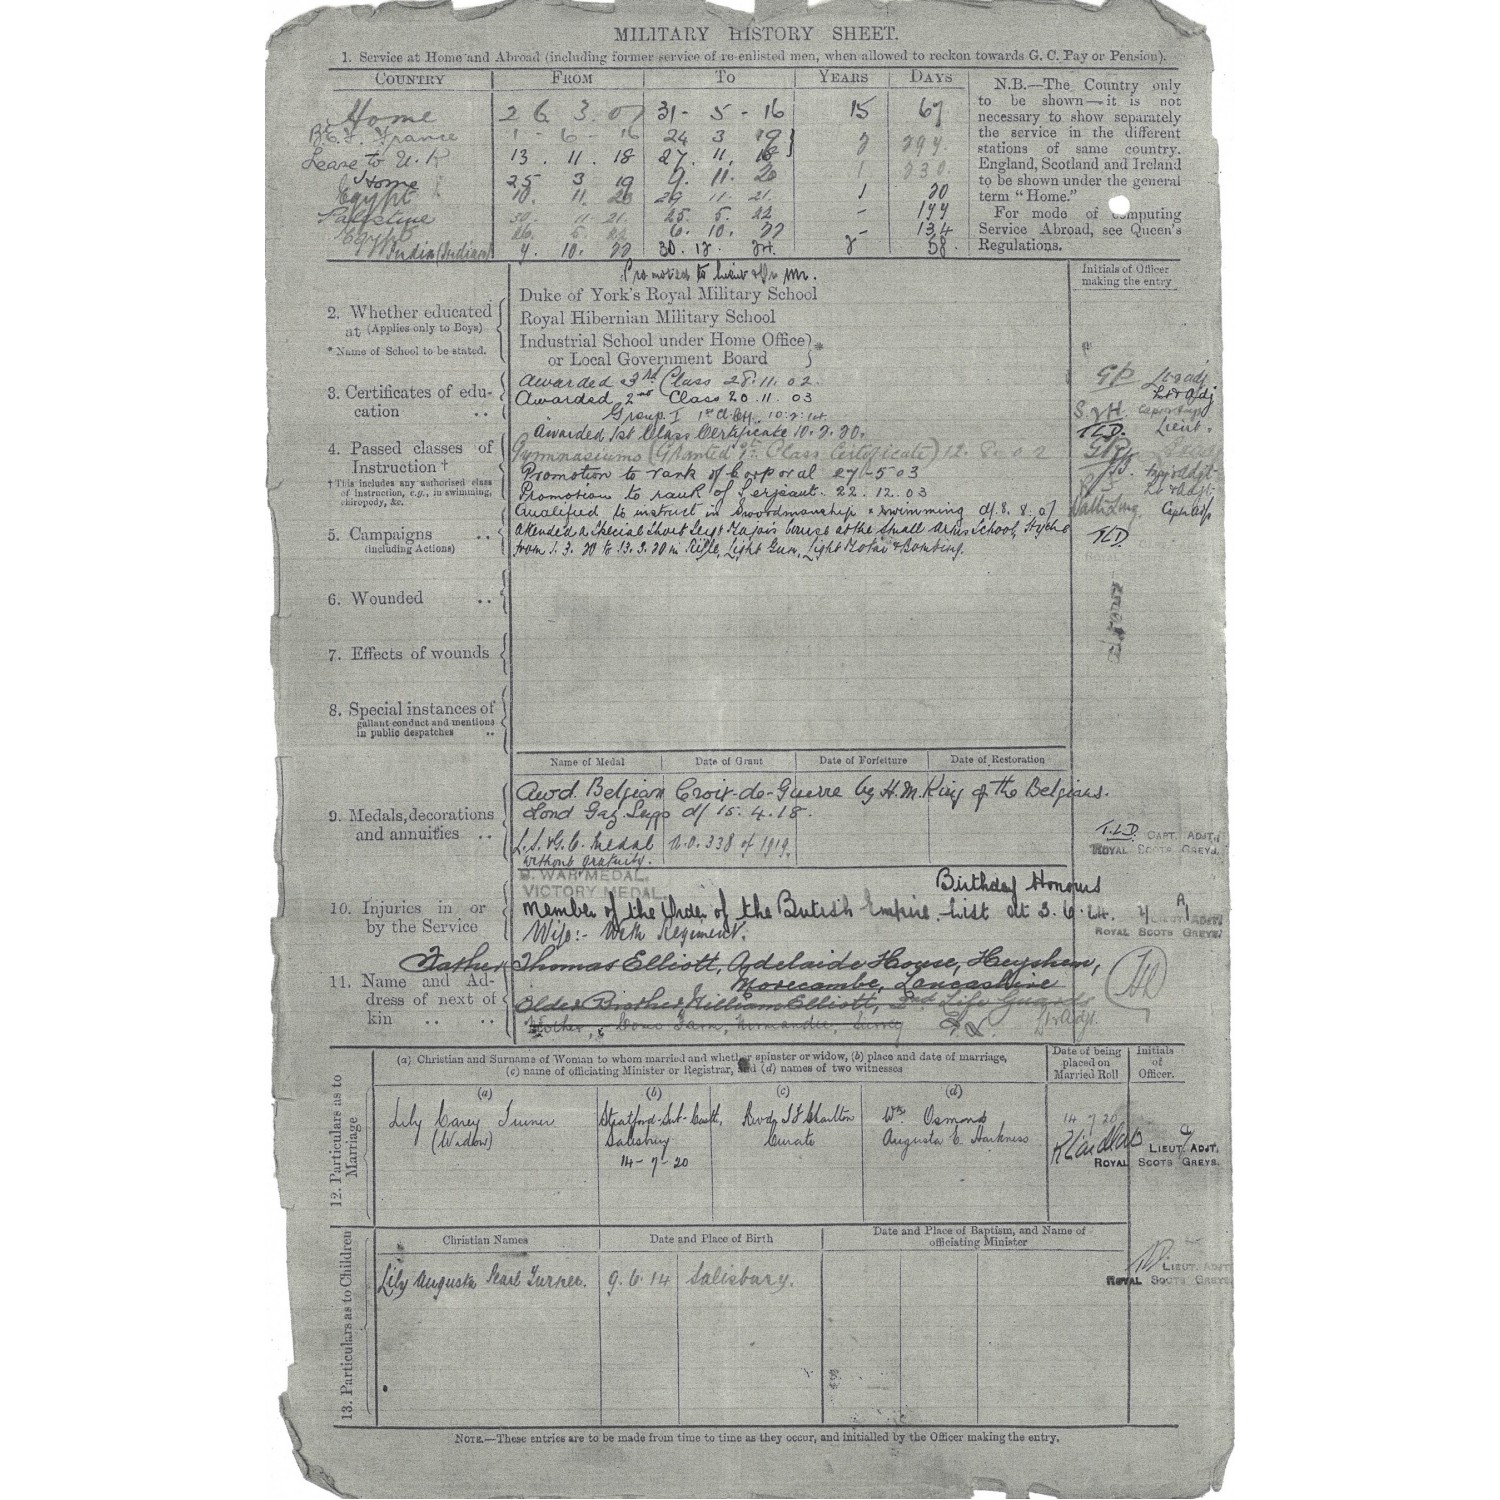 MILITARY HISTORY SHEET.
1. Service at Home and Abroad (including former service of re-enlisted men, when allowed to reckon towards G. C. Pay or Pension).
COUNTRY FROM TO YEARS DAYS
Home 26 3 01 31 - 5 - 16 15 67
B.E.F. France 1 - 6 - 16 24 3 19
Leave to U.K 13 . 11 . 18 27 . 11 . 18
Home 25 3 19 9 . 11 . 20 1 230
Egypt 10 . 11 20 29 11 . 21. 1 20
Palestine 30. 11 21. 25. 5. 22 -
Egypt 26. 5. 22 6. 10. 22 - 134
India (Indian) 7. 10. 22 30. 12. 24. 2 58.
N.B.—The Country only
to be shown—it is not
necessary to show separately
the service in the different
stations of same country.
England, Scotland and Ireland
to be shown under the general
term "Home."
For mode of computing
Service Abroad, see Queen's
Regulations.
Promoted to Lieut & Qr Mr.
Initials of Officer
making the entry
2. Whether educated
at (Applies only to Boys)
* Name of School to be stated.
Duke of York's Royal Military School
Royal Hibernian Military School
Industrial School under Home Office
or Local Government Board *
3. Certificates of edu-
cation ..
Awarded 3rd Class 28.11.02.
Awarded 2nd Class 20.11.03
Group I 1st
Awarded 1st Class Certificate 10.2.20.
Lt & Adj
Lieut.
TLD.
4. Passed classes of
Instruction †
† This includes any authorised class
of instruction, e.g., in swimming,
chiropody, &c.
Gymnasiums (Granted Class Certificate) 12.8.02
Promotion to rank of Corporal 27-5-03
Promotion to rank of Serjeant. 22.12.03
Qualified to instruct in Swordmanship & swimming d/ 8.8.07
5. Campaigns ..
(including Actions)
attended a Special Short Sergt Majors Course at the Small Arms School, Hythe
from 1.3.20 to 13.3.20 in Rifle, Light Gun, Light Motar & Bombing.
TLD.
6. Wounded ..
7. Effects of wounds
8. Special instances of
gallant conduct and mentions
in public despatches ..
Name of Medal Date of Grant Date of Forfeiture Date of Restoration
9. Medals, decorations
and annuities ..
Awd. Belgian Croix-de-Guerre by H.M. King of the Belgians.
Lond Gaz. Supp d/ 15.4.18.
L.S. & G.C. Medal A.O. 338 of 1919.
without gratuity.
T.L.D. CAPT. ADJT.,
ROYAL SCOTS GREYS.
B. WAR MEDAL.
VICTORY MEDAL.
10. Injuries in or
by the Service
Birthday Honours
Member of the Order of the British Empire. List dt 3.6.24.
LIEUT. ADJT.
ROYAL SCOTS GREYS.
Wife:- With Regiment.
11. Name and Ad-
dress of next of
kin .. ..
Father Thomas Elliott, Adelaide House, Heysham,
Morecambe, Lancashire
Older Brother William Elliott, 2nd Life Guards
Mother, Home Farm, Normandie, Surrey
Lt & Adjt.
12. Particulars as to
Marriage
(a) Christian and Surname of Woman to whom married and whether spinster or widow, (b) place and date of marriage,
(c) name of officiating Minister or Registrar, and (d) names of two witnesses
Date of being
placed on
Married Roll
Initials
of
Officer.
(a) (b) (c) (d)
Lily Carey Turner
(Widow)
Stratford-Sub-Castle,
Salisbury
14-7-20
Revd. J F Charlton
Curate
Wm Osmond
Augusta E. Harkness
14 7 20
LIEUT. ADJT.
ROYAL SCOTS GREYS.
13. Particulars as to Children
Christian Names Date and Place of Birth Date and Place of Baptism, and Name of
officiating Minister
Lily Augusta Pearl Turner. 9.6.14 Salisbury.
LIEUT. ADJT
ROYAL SCOTS GREYS
NOTE.—These entries are to be made from time to time as they occur, and initialled by the Officer making the entry.